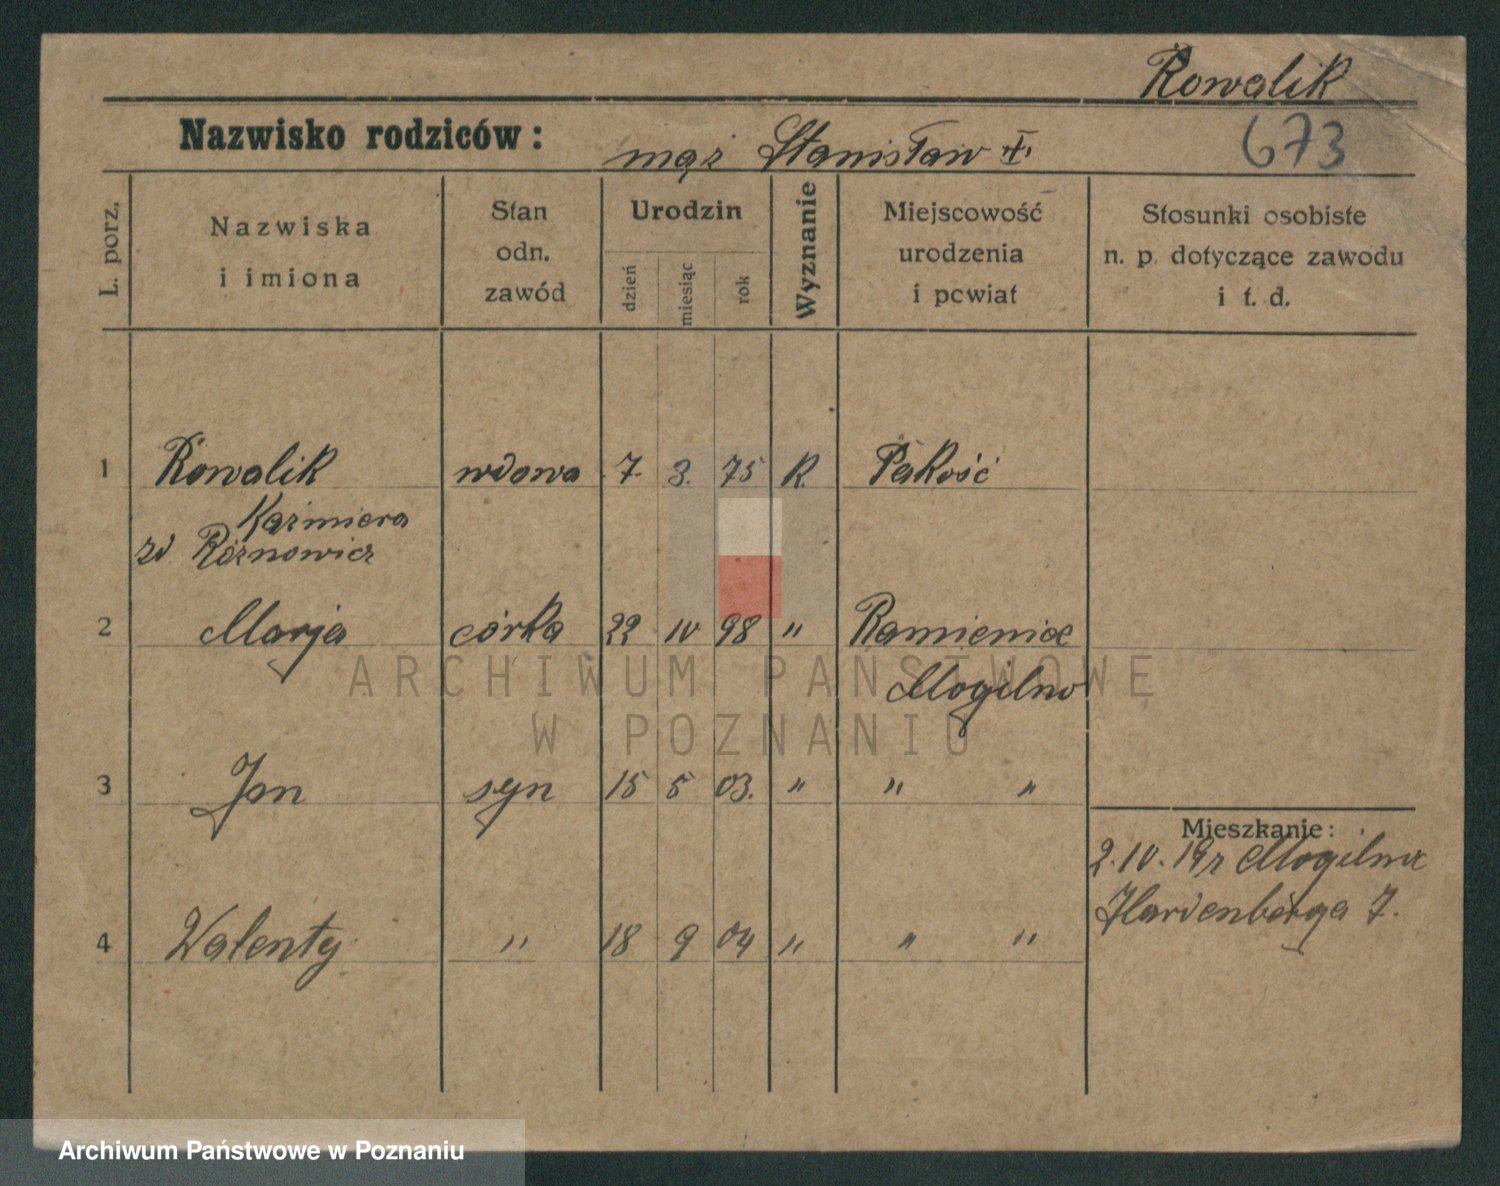 Kowalik
Nazwisko rodziców: mąż Stanisław †.
673
L. porz. Nazwiska i imiona Stan odn. zawód Urodzin dzień miesiąc rok Wyznanie Miejscowość urodzenia i powiat Stosunki osobiste n. p. dotyczące zawodu i t. d.
1 Kowalik wdowa 7. 3. 75 K. Pakość
Kaźmiera
zd Róznowicz
2 Marja córka 22 10 98 " Kamieniec
Mogilno
ARCHIWUM PAŃSTWOWE
W POZNANIU
3 Jan syn 15 5 03. " " "
Mieszkanie:
2.10.19r Mogilna
Hardenberga 7.
4 Walenty " 18 9 04 " " "
Archiwum Państwowe w Poznaniu